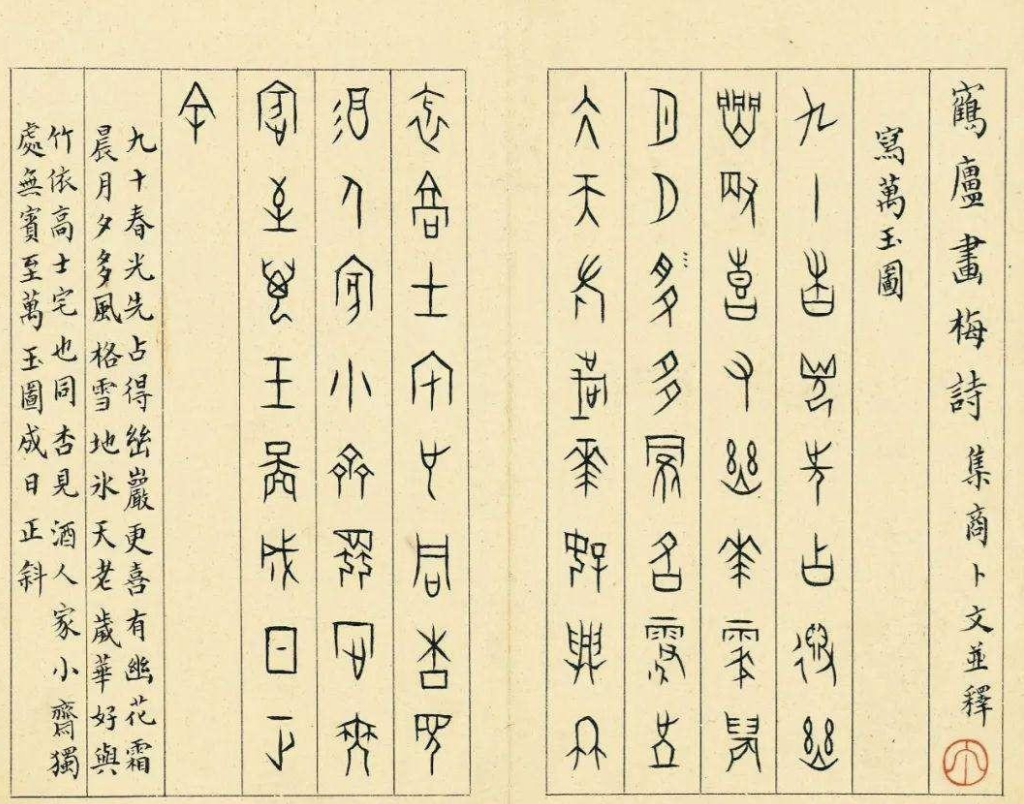 鶴廬畫梅詩 集商卜文並釋
寫萬玉圖
九十春光先占得幽
巖更喜有幽花霜晨
月夕多風格雪地
冰天老歲華好與竹
依高士宅也同杏見
酒人家小齋獨處無
賓至萬玉圖成日正
斜
九十春光先占得幽巖更喜有幽花霜
晨月夕多風格雪地氷天老歲華好與
竹依高士宅也同杏見酒人家小齋獨
處無賓至萬玉圖成日正斜